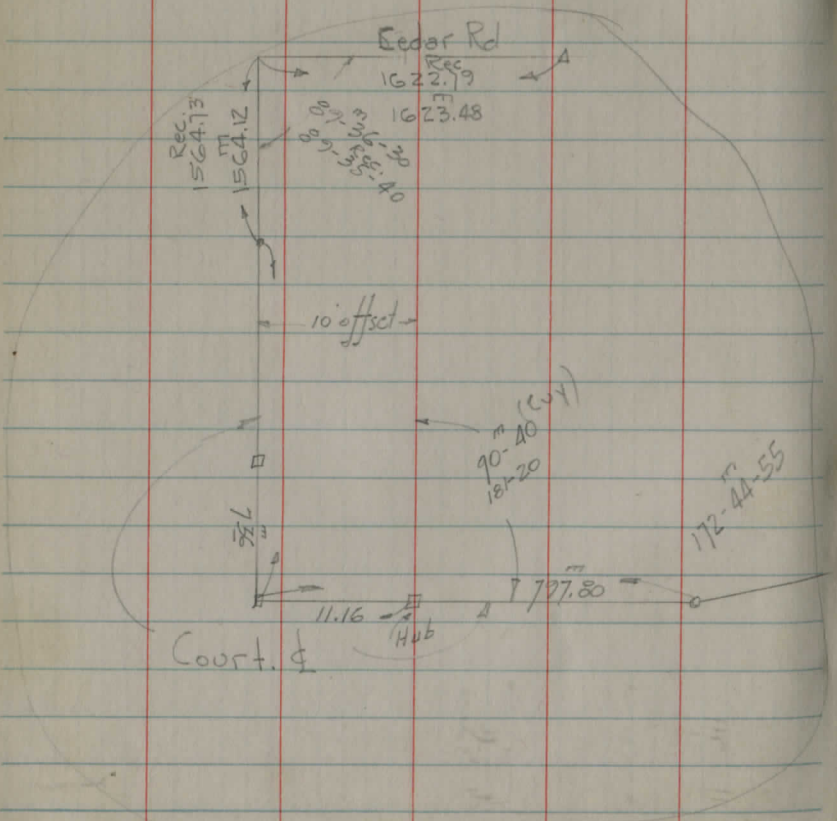 Cedar Rd
Rec.
1622.79
m
1623.48
Rec.
1564.73
m
1564.12
m
89-36-30
Rec.
89-35-40
10' offset
(cut)
m
90-40
181-20
m
172-44-55
m
7.36
m
797.80
11.16
Hub
Court. ℄